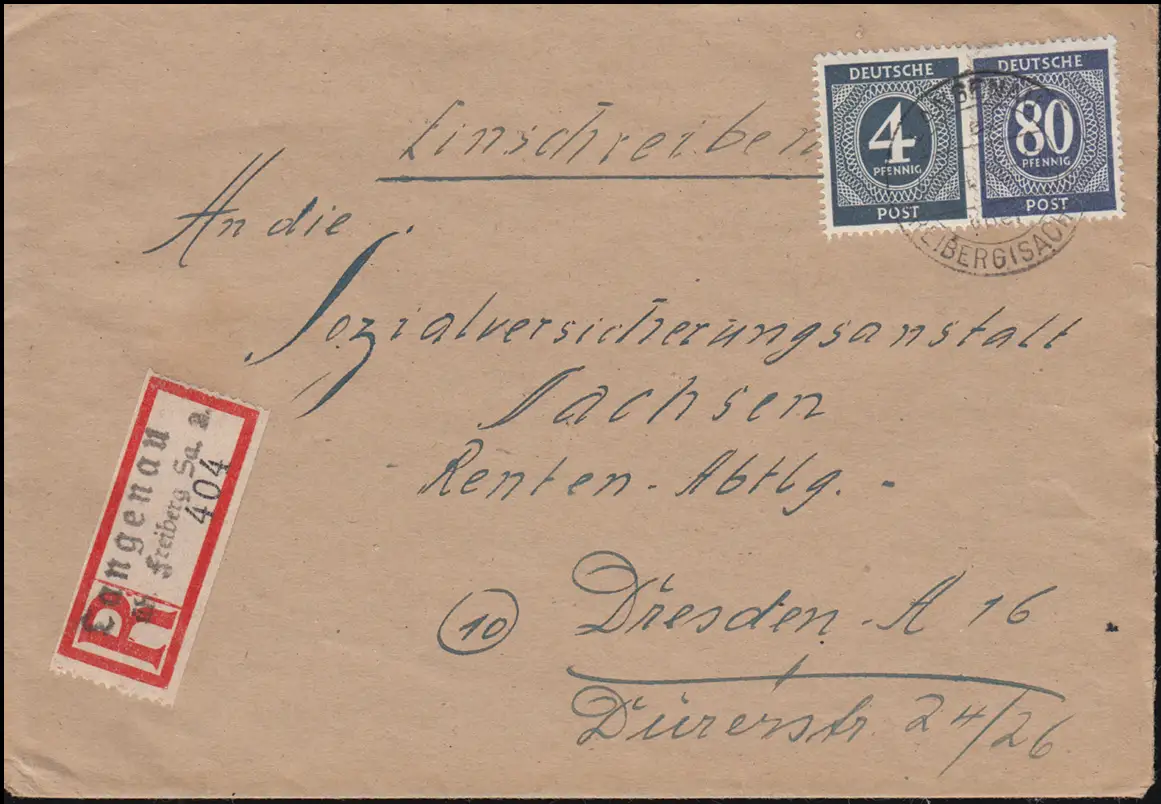 Einschreiben
DEUTSCHE
4
PFENNIG
POST
DEUTSCHE
80
PFENNIG
POST
FREIBERG(SACHS
An die
Sozialversicherungsanstalt
Sachsen
Renten-Abtlg.-
(10) Dresden-A 16
Dürerstr. 24/26
R
Langenau
Freiberg Sa. a.
404